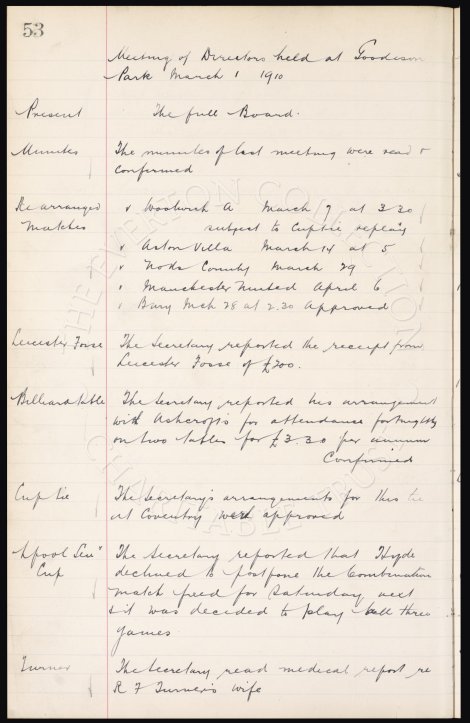 53
Meeting of Directors held at Goodison
Park March 1 1910
Present The full Board.
Minutes The minutes of last meeting were read &
confirmed
Re arranged v Woolwich A March 7 at 3.30
Matches subject to Cup tie replays
v Aston Villa March 14 at 5
v Notts County March 29
v Manchester United April 6
v Bury Mch 28 at 2.30 Approved
Leicester Fosse The Secretary reported the receipt from
Leicester Fosse of £700.
Billiard table The Secretary reported his arrangement
with Ashcrofts for attendance fortnightly
on two tables for £3.30 per annum
Confirmed
Cup tie The Secretary's arrangements for this tie
at Coventry were approved
L'pool Senr The Secretary reported that Hyde
Cup declined to postpone the Combination
match fixed for Saturday next
& it was decided to play all three
games
Turner The Secretary read medical report re
R F Turner's wife
THE EVERTON COLLECTION
CHARITABLE TRUST